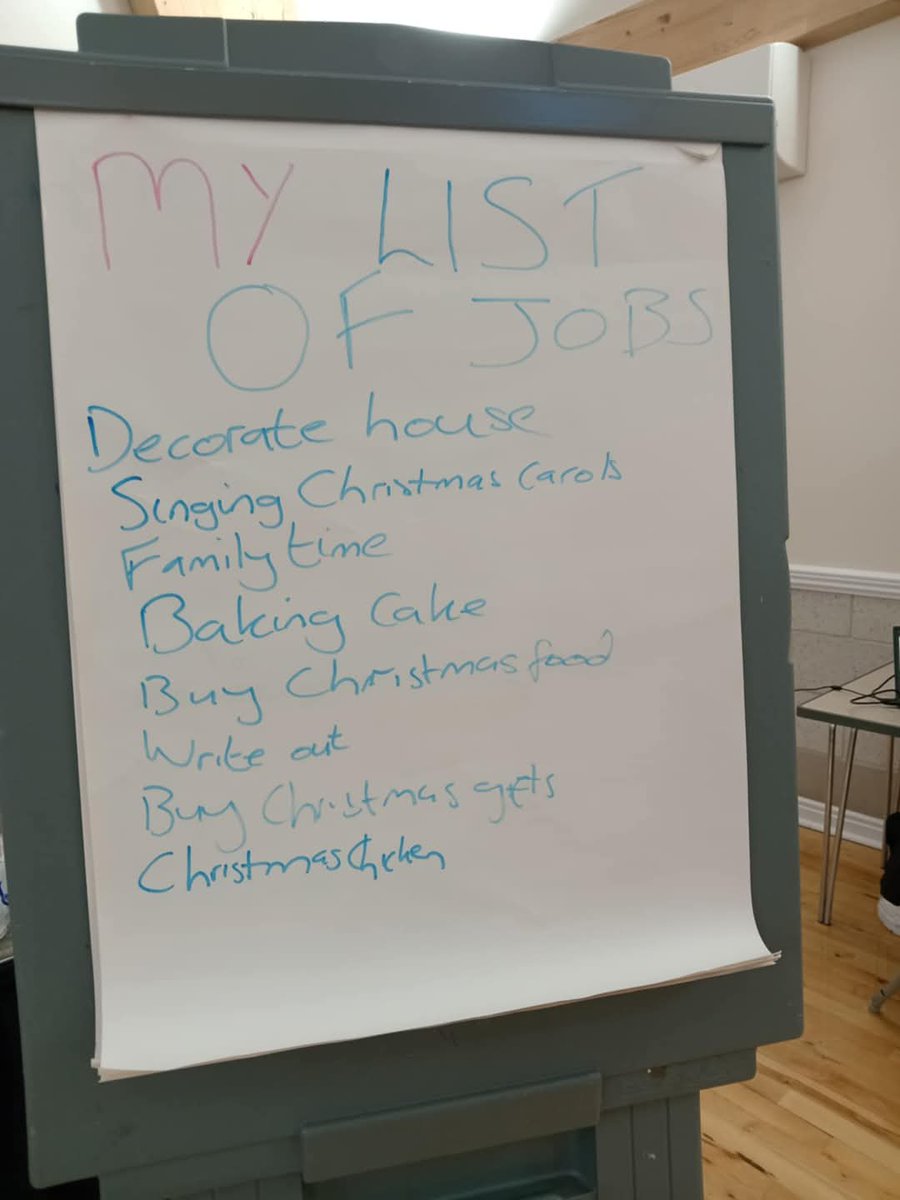 MY LIST
OF JOBS
Decorate house
Singing Christmas Carols
Family time
Baking Cake
Buy Christmas food
Write out
Buy Christmas
Christmas